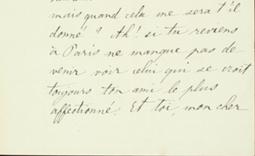 mais quand cela me sera t'il
donné ? Ah! si tu reviens
à Paris ne manque pas de
venir voir celui qui se croit
toujours ton ami le plus
affectionné. Et toi, mon cher